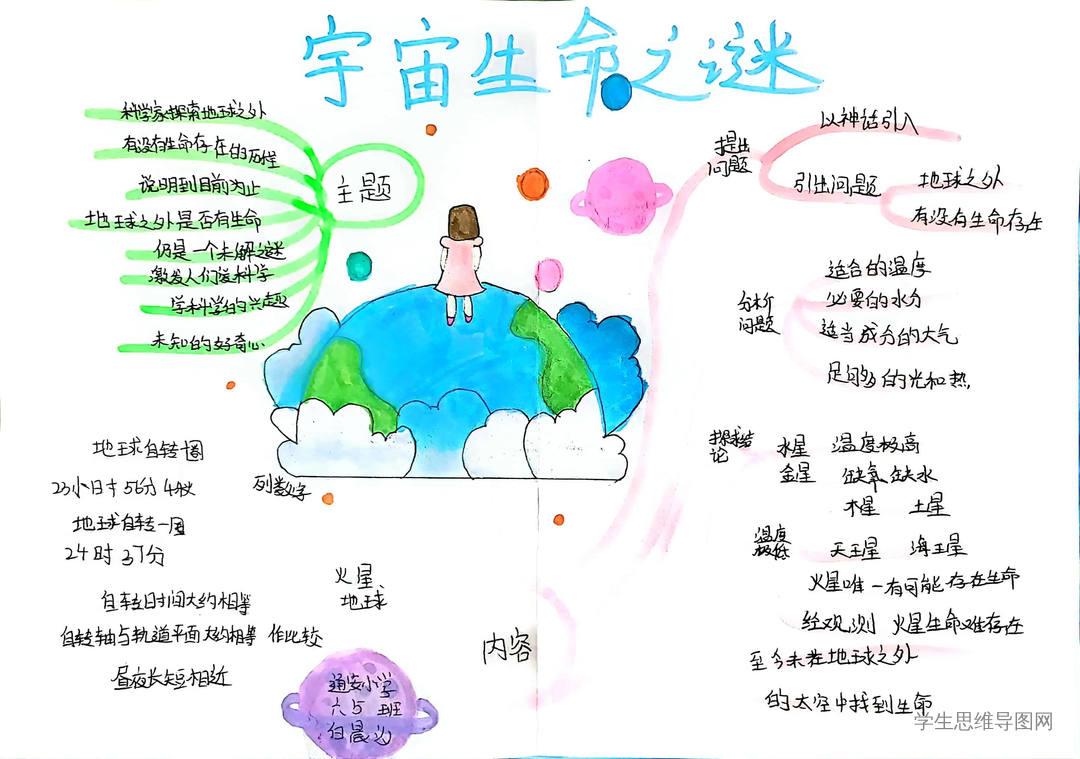 宇宙生命之谜
主题
科学家探索地球之外
有没有生命存在的历程
说明到目前为止
地球之外是否有生命
仍是一个未解之谜
激发人们爱科学
学科学的兴趣
未知的好奇心
提出
问题
以神话引入
引出问题
地球之外
有没有生命存在
分析
问题
适合的温度
必要的水分
适当成分的大气
足够的光和热
探求结
论
水星 温度极高
金星 缺氧缺水
木星 土星
温度
极低
天王星 海王星
火星唯一有可能存在生命
经观测 火星生命难存在
至今未在地球之外
的太空中找到生命
内容
列数字
地球自转一圈
23小时56分4秒
地球自转一周
24时37分
火星、
地球
自转时间大约相等
自转轴与轨道平面大约相等 作比较
昼夜长短相近
通安小学
六5班
白晨
学生思维导图网